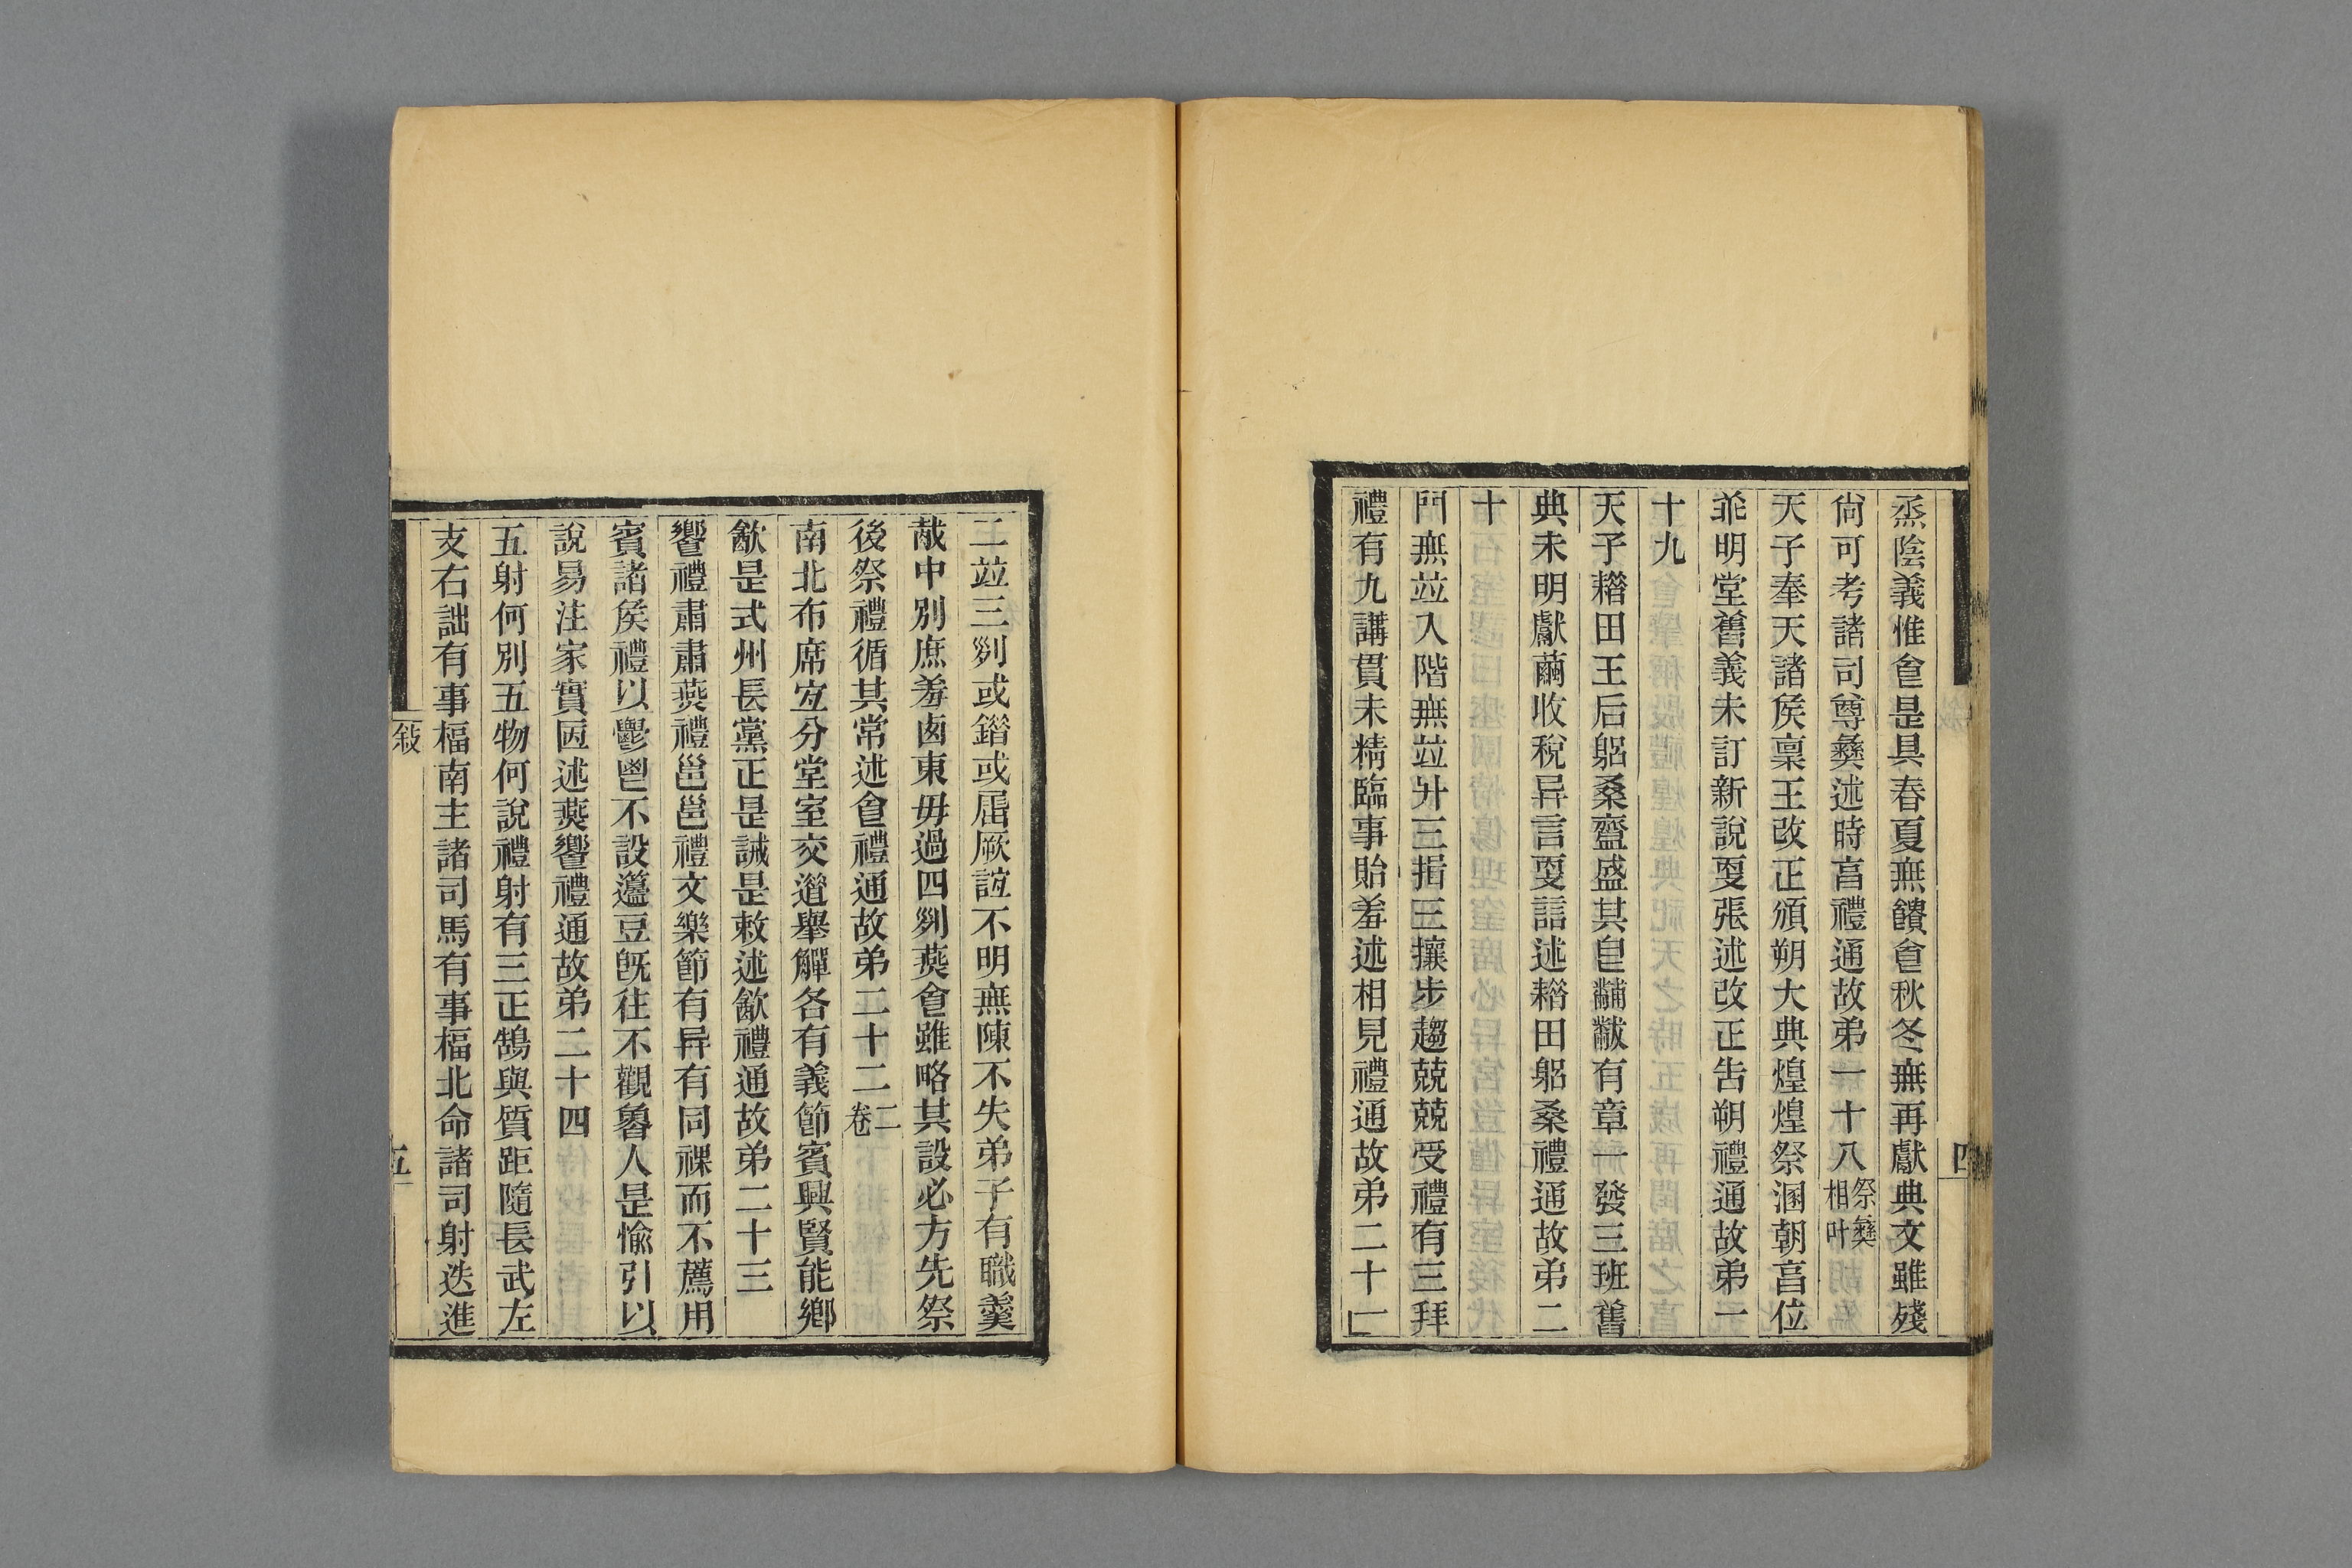 烝陰義惟㑹是具春夏無饋㑹秋冬無再獻典文雖殘
尙可考諸司尊彝述時亯禮通故弟一十八祭彝相叶
天子奉天諸矦稟王改正頒朔大典煌煌祭溷朝亯位
乖明堂舊義未訂新說㪅張述改正告朔禮通故弟一
十九
天子耤田王后躬桑齍盛其皀黼黻有章一發三班舊
典未明獻繭收稅异言㪅䛡述耤田躬桑禮通故弟二
十
門無竝入階無竝升三揖三攘步趨兢兢受禮有三拜
禮有九講貫未精臨事貽羞述相見禮通故弟二十一
二竝三列或錯或屈厥誼不明無陳不失弟子有職羹
胾中別庶羞㢴東毋過四列燕㑹雖略其設必方先祭
後祭禮循其常述㑹禮通故弟二十二二卷
南北布席宐分堂室交遒舉觶各有義節賓興賢能鄉
㱃是式州長黨正是誡是敕述㱃禮通故弟二十三
饗禮肅肅燕禮邕邕禮文樂節有异有同祼而不薦用
賓諸矦禮以鬱鬯不設籩豆旣往不觀魯人是愉引以
說易注家實㘝述燕饗禮通故弟二十四
五射何別五物何說禮射有三正鵠與質距隨長武左
支右詘有事楅南主諸司馬有事楅北命諸司射迭進
敍
五
四